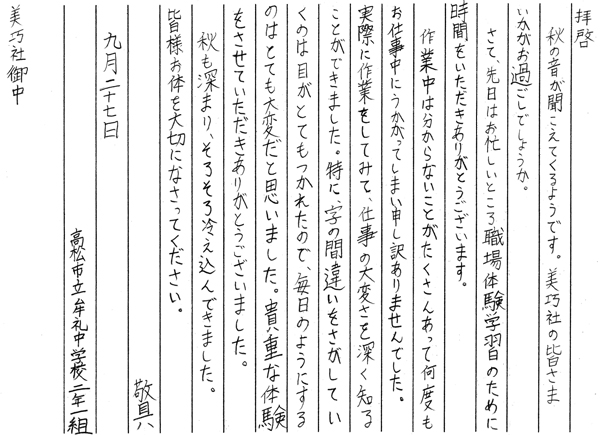 拝啓
秋の音が聞こえてくるようです。美巧社の皆さま
いかがお過ごしでしょうか。
さて、先日はお忙しいところ職場体験学習のために
時間をいただきありがとうございます。
作業中は分からないことがたくさんあって何度も
お仕事中にうかがってしまい申し訳ありませんでした。
実際に作業をしてみて、仕事の大変さを深く知る
ことができました。特に、字の間違いをさがしてい
くのは目がとてもつかれたので、毎日のようにする
のはとても大変だと思いました。貴重な体験
をさせていただきありがとうございました。
秋も深まり、そろそろ冷え込んできました。
皆様お体を大切になさってください。
敬具
九月二十七日
高松市立牟礼中学校二年一組
美巧社御中